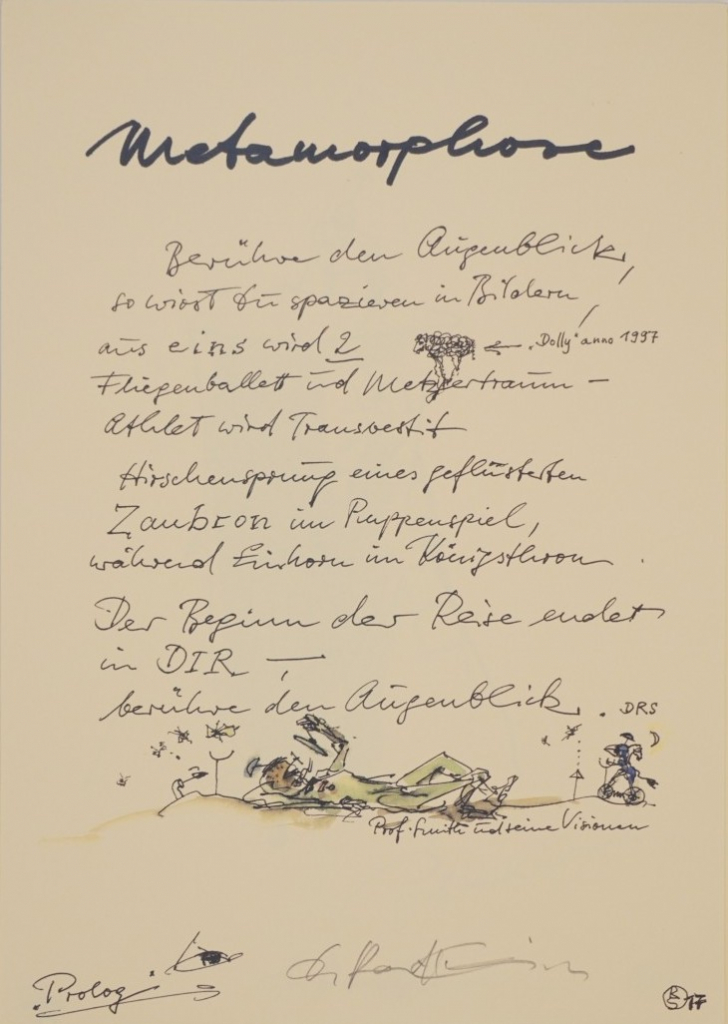 Metamorphose
Berühre den Augenblick,
so wirst Du spazieren in Bildern,
aus eins wird 2
"Dolly" anno 1997
Fliegenballett und Metzgertraum –
Athlet wird Transvestit
Hirschensprung eines geflüsterten
im Puppenspiel,
während Einhorn im Königsthron.
Der Beginn der Reise endet
in DIR –,
berühre den Augenblick.
. DRS
Prof. Smith und seine Visionen
"Prolog"
17